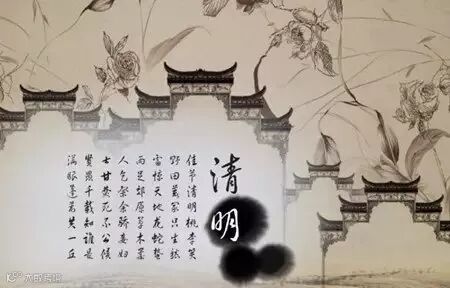 清明
佳节清明桃李笑
野田荒冢只生愁
雷惊天地龙蛇蛰
雨足郊原草木柔
人乞祭余骄妾妇
士甘焚死不公侯
贤愚千载知谁是
满眼蓬蒿共一丘